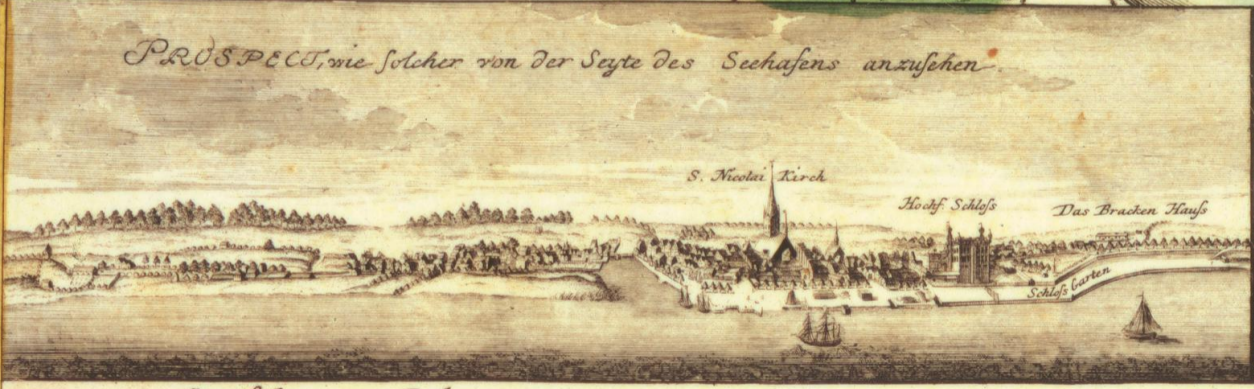 PROSPECT, wie ſolcher von der Seyte des Seehafens anzuſehen.
S. Nicolai Kirch
Hochf. Schloſs
Das Bracken Hauſs
Schloſs Garten